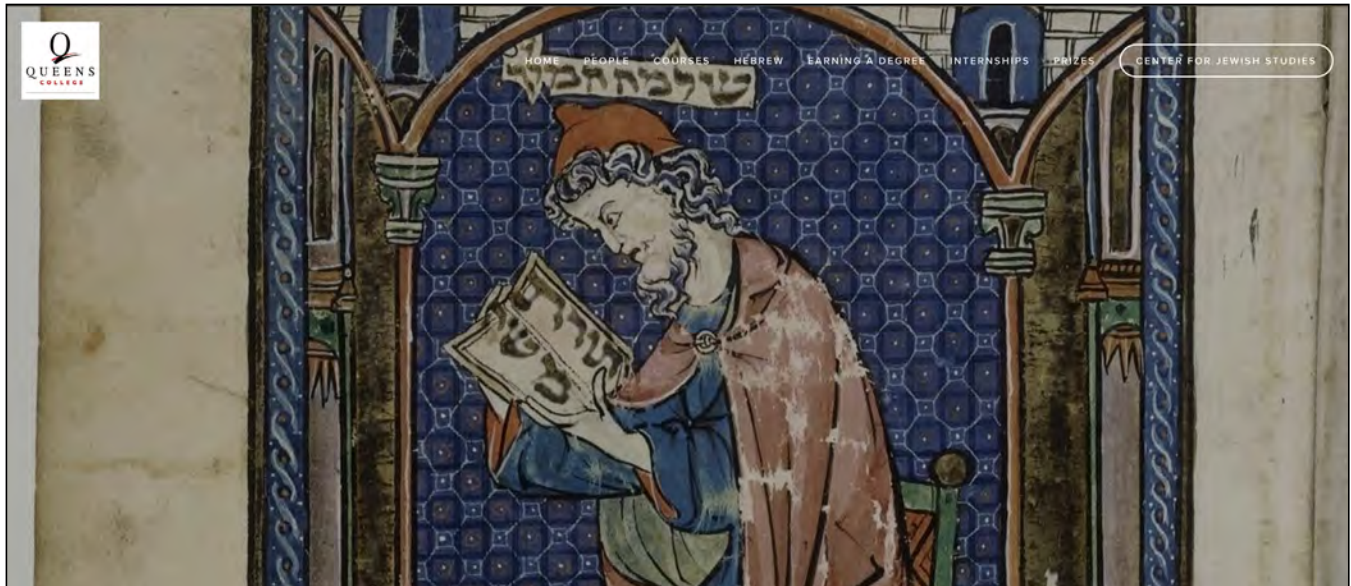 QUEENS
COLLEGE
HOME
PEOPLE
COURSES
HEBREW
EARNING A DEGREE
INTERNSHIPS
PRIZES
CENTER FOR JEWISH STUDIES
שלמה המלך
תורת
משה